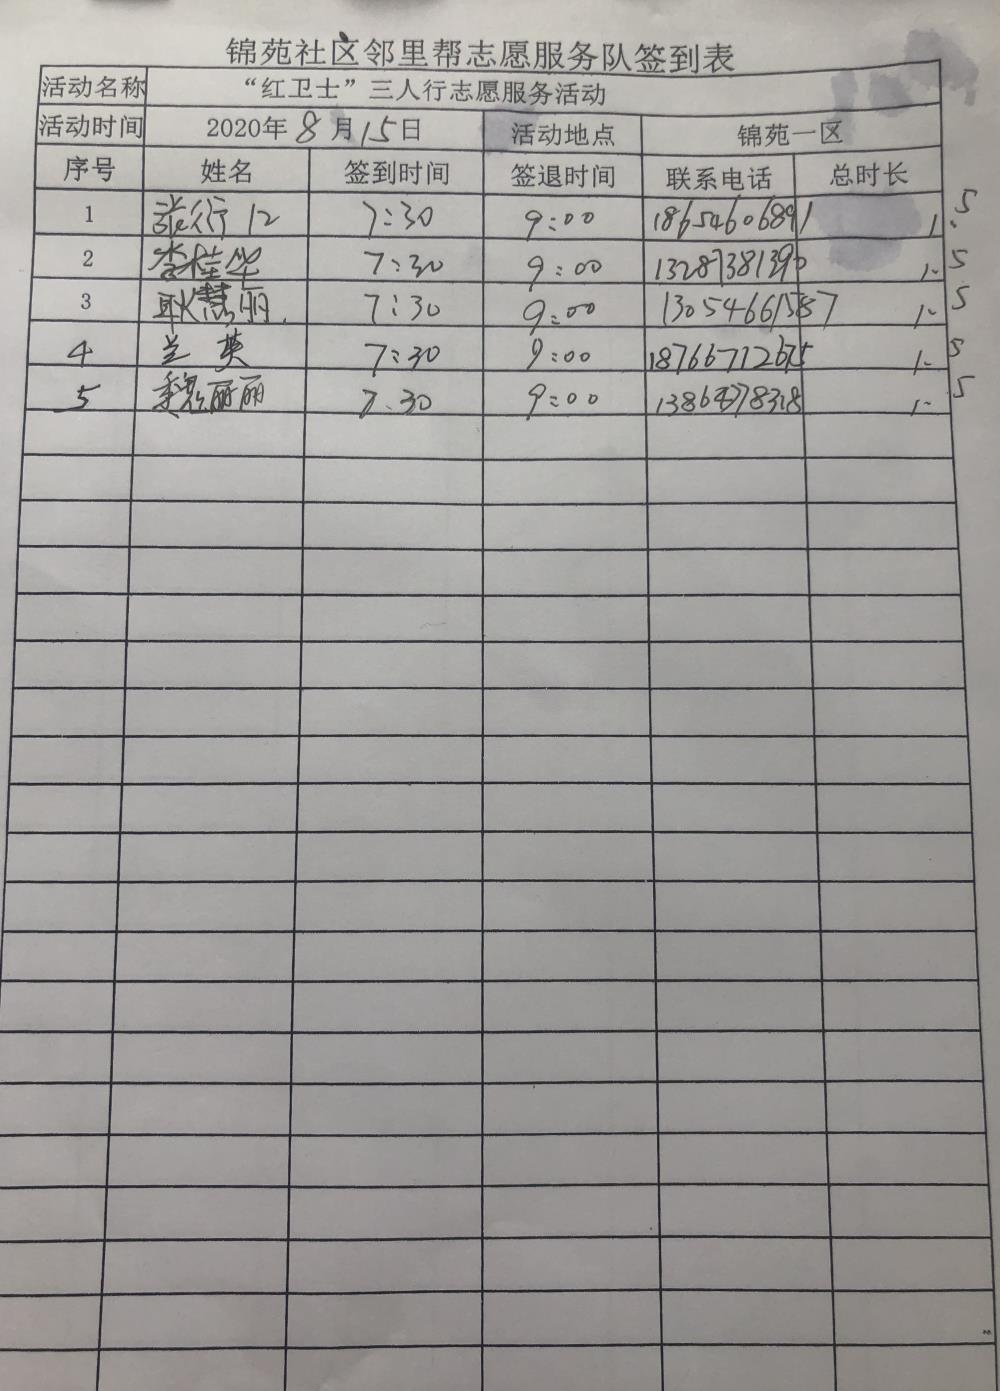 锦苑社区邻里帮志愿服务队签到表
活动名称 “红卫士”三人行志愿服务活动
活动时间 2020年8月15日 活动地点 锦苑一区
序号 姓名 签到时间 签退时间 联系电话 总时长
1 7:30 9:00 18654606891 1.5
2 李桂华 7:30 9:00 13287381390 1.5
3 耿慧丽 7:30 9:00 13054661587 1.5
4 兰英 7:30 9:00 18766712675 1.5
5 魏丽丽 7.30 9:00 1.5